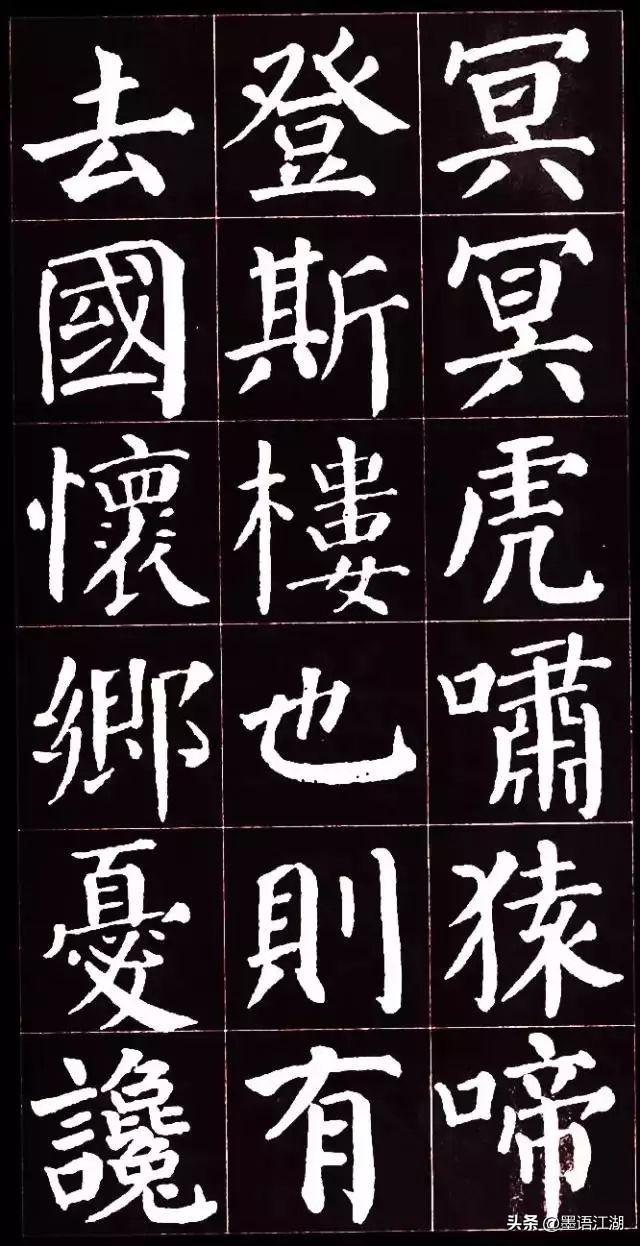 冥冥虎嘯猿啼
登斯樓也則有
去國懷鄉憂讒
头条 @墨语江湖